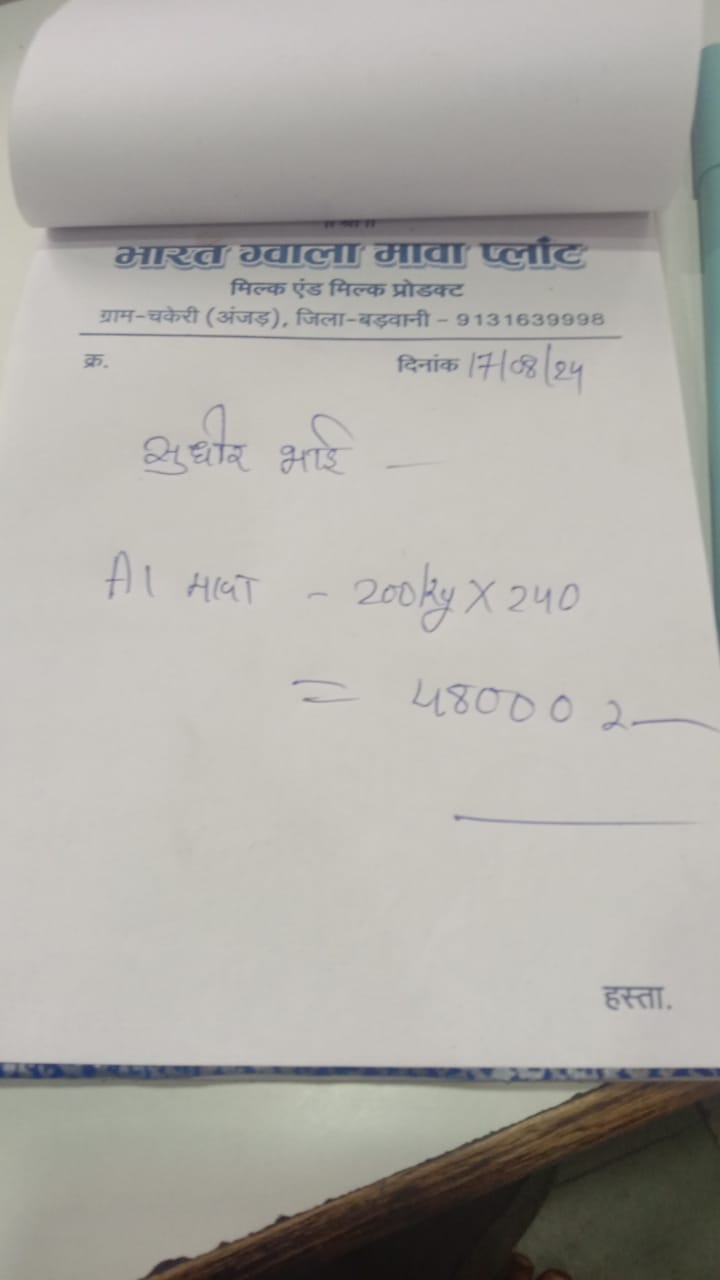 ।। श्री ।।
भारत ग्वाला मावा प्लांट
मिल्क एंड मिल्क प्रोडक्ट
ग्राम-चकेरी (अंजड़), जिला-बड़वानी - 9131639998
क्र. दिनांक 17/08/24
सुधीर भाई -
A1 मावा - 200kg X 240
= 48000 रु
हस्ता.